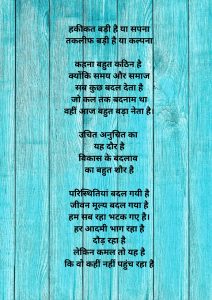 हकीकत बड़ी है या सपना
तकलीफ बड़ी है या कल्पना
कहना बहुत कठिन है
क्योंकि समय और समाज
सब कुछ बदल देता है
जो कल तक बदनाम था
वहीं आज बहुत बड़ा नेता है।
उचित अनुचित का
यह दौर है
विकास के बदलाव
का बहुत शौर है
परिस्थितियां बदल गयी है
जीवन मूल्य बदल गया है
हम सब रहा भटक गए है।
हर आदमी भाग रहा है
दौड़ रहा है
लेकिन कमल तो यह है
कि वो कहीं नहीं पहुंच रहा है